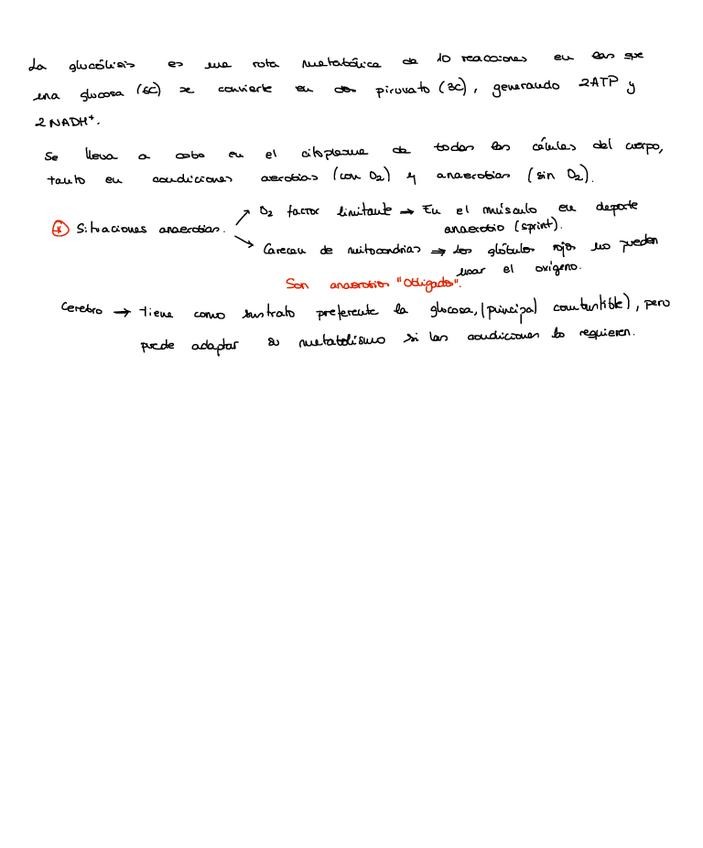 La glucólisis es una ruta metabólica de 10 reacciones en las que
una glucosa (6C) se convierte en dos piruvato (3C), generando 2ATP y
2 NADH⁺.
Se lleva a cabo en el citoplasma de todas las células del cuerpo,
tanto en condiciones aerobias (con O₂) y anaerobias (sin O₂).
* Situaciones anaerobias.
↗ O₂ factor limitante → En el músculo en deporte
anaerobio (sprint).
↘ Carecen de mitocondrias → los glóbulos rojos no pueden
usar el oxígeno.
Son anaerobios "Obligados".
Cerebro → tiene como sustrato preferente la glucosa, (principal combustible), pero
puede adaptar su metabolismo si las condiciones lo requieren.